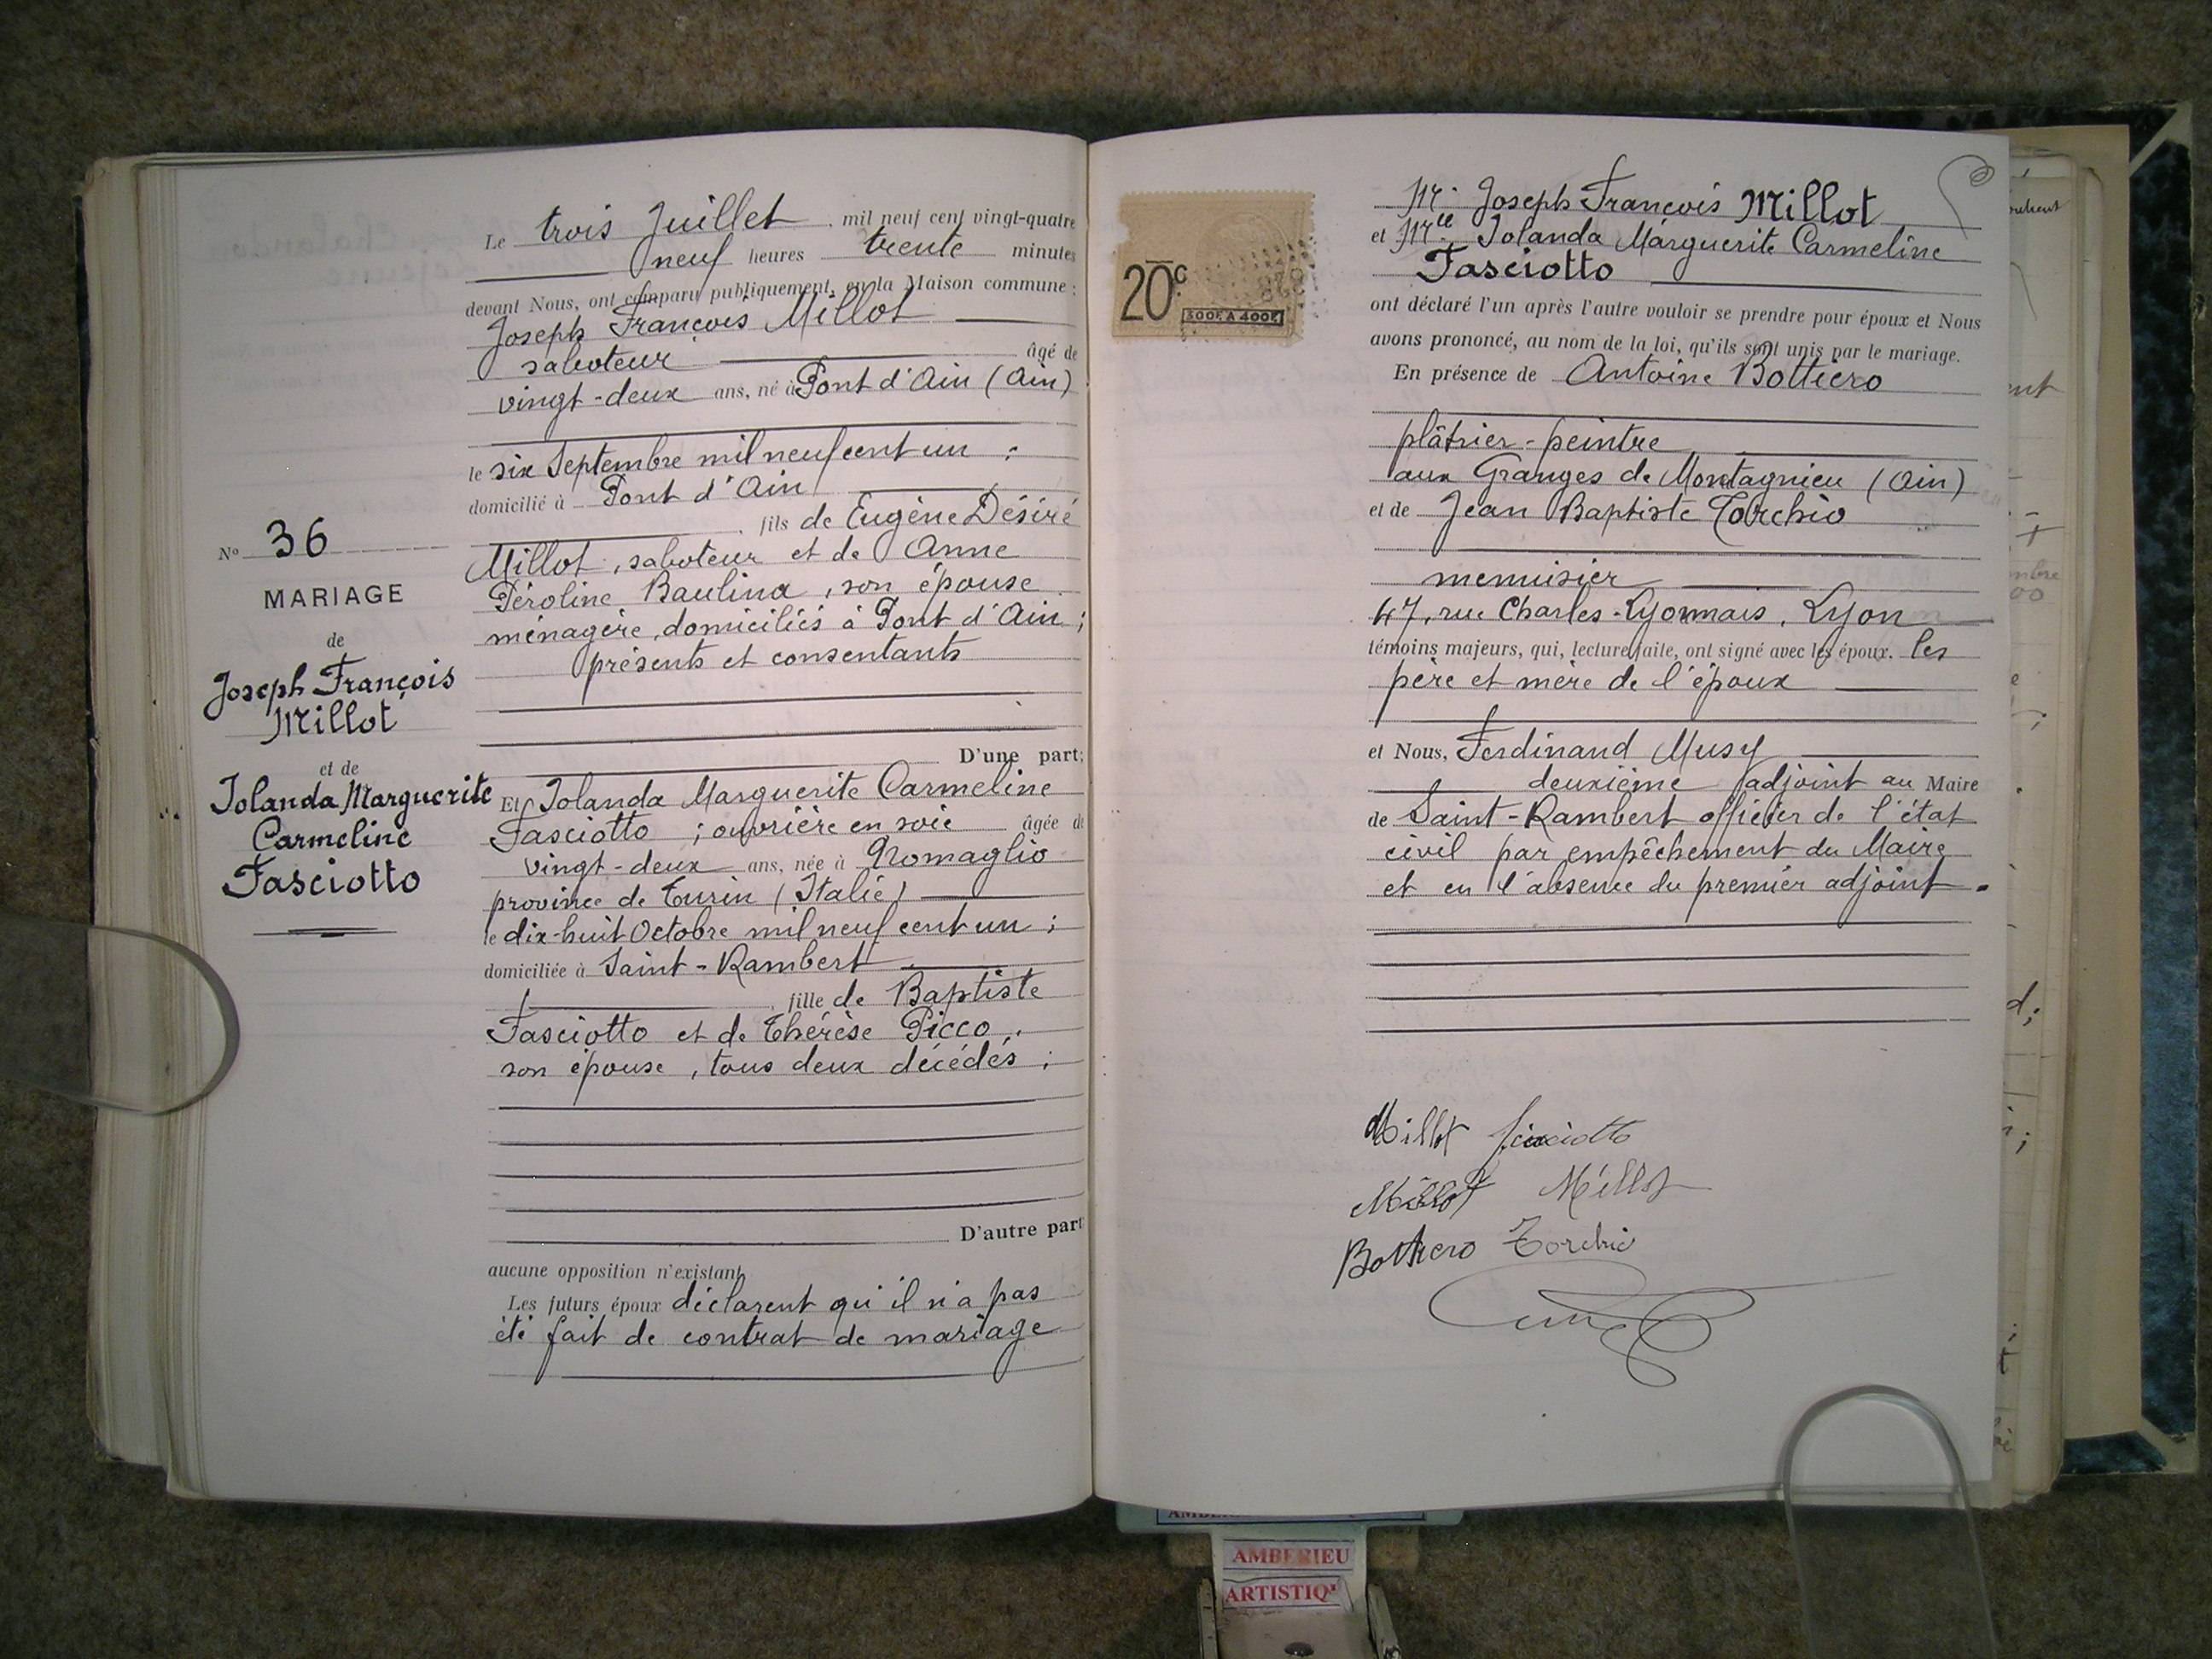 N° 36
MARIAGE
de
Joseph François
Millot
et de
Iolanda Marguerite
Carmeline
Fasciotto
Le trois Juillet mil neuf cent vingt-quatre
neuf heures trente minutes
devant Nous, ont comparu publiquement, en la Maison commune :
Joseph François Millot
saboteur âgé de
vingt-deux ans, né à Pont d'Ain (Ain)
le six Septembre mil neuf cent un ;
domicilié à Pont d'Ain
fils de Eugène Désiré
Millot, saboteur et de Anne
Péroline Baulina, son épouse
ménagère, domiciliés à Pont d'Ain ;
présents et consentants
D'une part;
Et Iolanda Marguerite Carmeline
Fasciotto ; ouvrière en soie âgée de
vingt-deux ans, née à Nomaglio
province de Turin (Italie)
le dix-huit Octobre mil neuf cent un ;
domiciliée à Saint-Rambert
fille de Baptiste
Fasciotto et de Thérèse Picco,
son épouse, tous deux décédés ;
D'autre part
aucune opposition n'existant
Les futurs époux déclarent qu'il n'a pas
été fait de contrat de mariage
20c
300F. A 400F.
Mr. Joseph François Millot
et Mlle Iolanda Marguerite Carmeline
Fasciotto
ont déclaré l'un après l'autre vouloir se prendre pour époux et Nous
avons prononcé, au nom de la loi, qu'ils sont unis par le mariage.
En présence de Antoine Bottiero
plâtrier-peintre
aux Granges de Montagnieu (Ain)
et de Jean Baptiste Torchio
menuisier
47, rue Charles-Lyonnais, Lyon
témoins majeurs, qui, lecture faite, ont signé avec les époux. les
père et mère de l'époux
et Nous, Ferdinand Musy
deuxième adjoint au Maire
de Saint-Rambert officier de l'état
civil par empêchement du Maire
et en l'absence du premier adjoint.
Millot Fasciotto
Millot Millot
Bottiero Torchio
AMBERIEU
ARTISTIQ